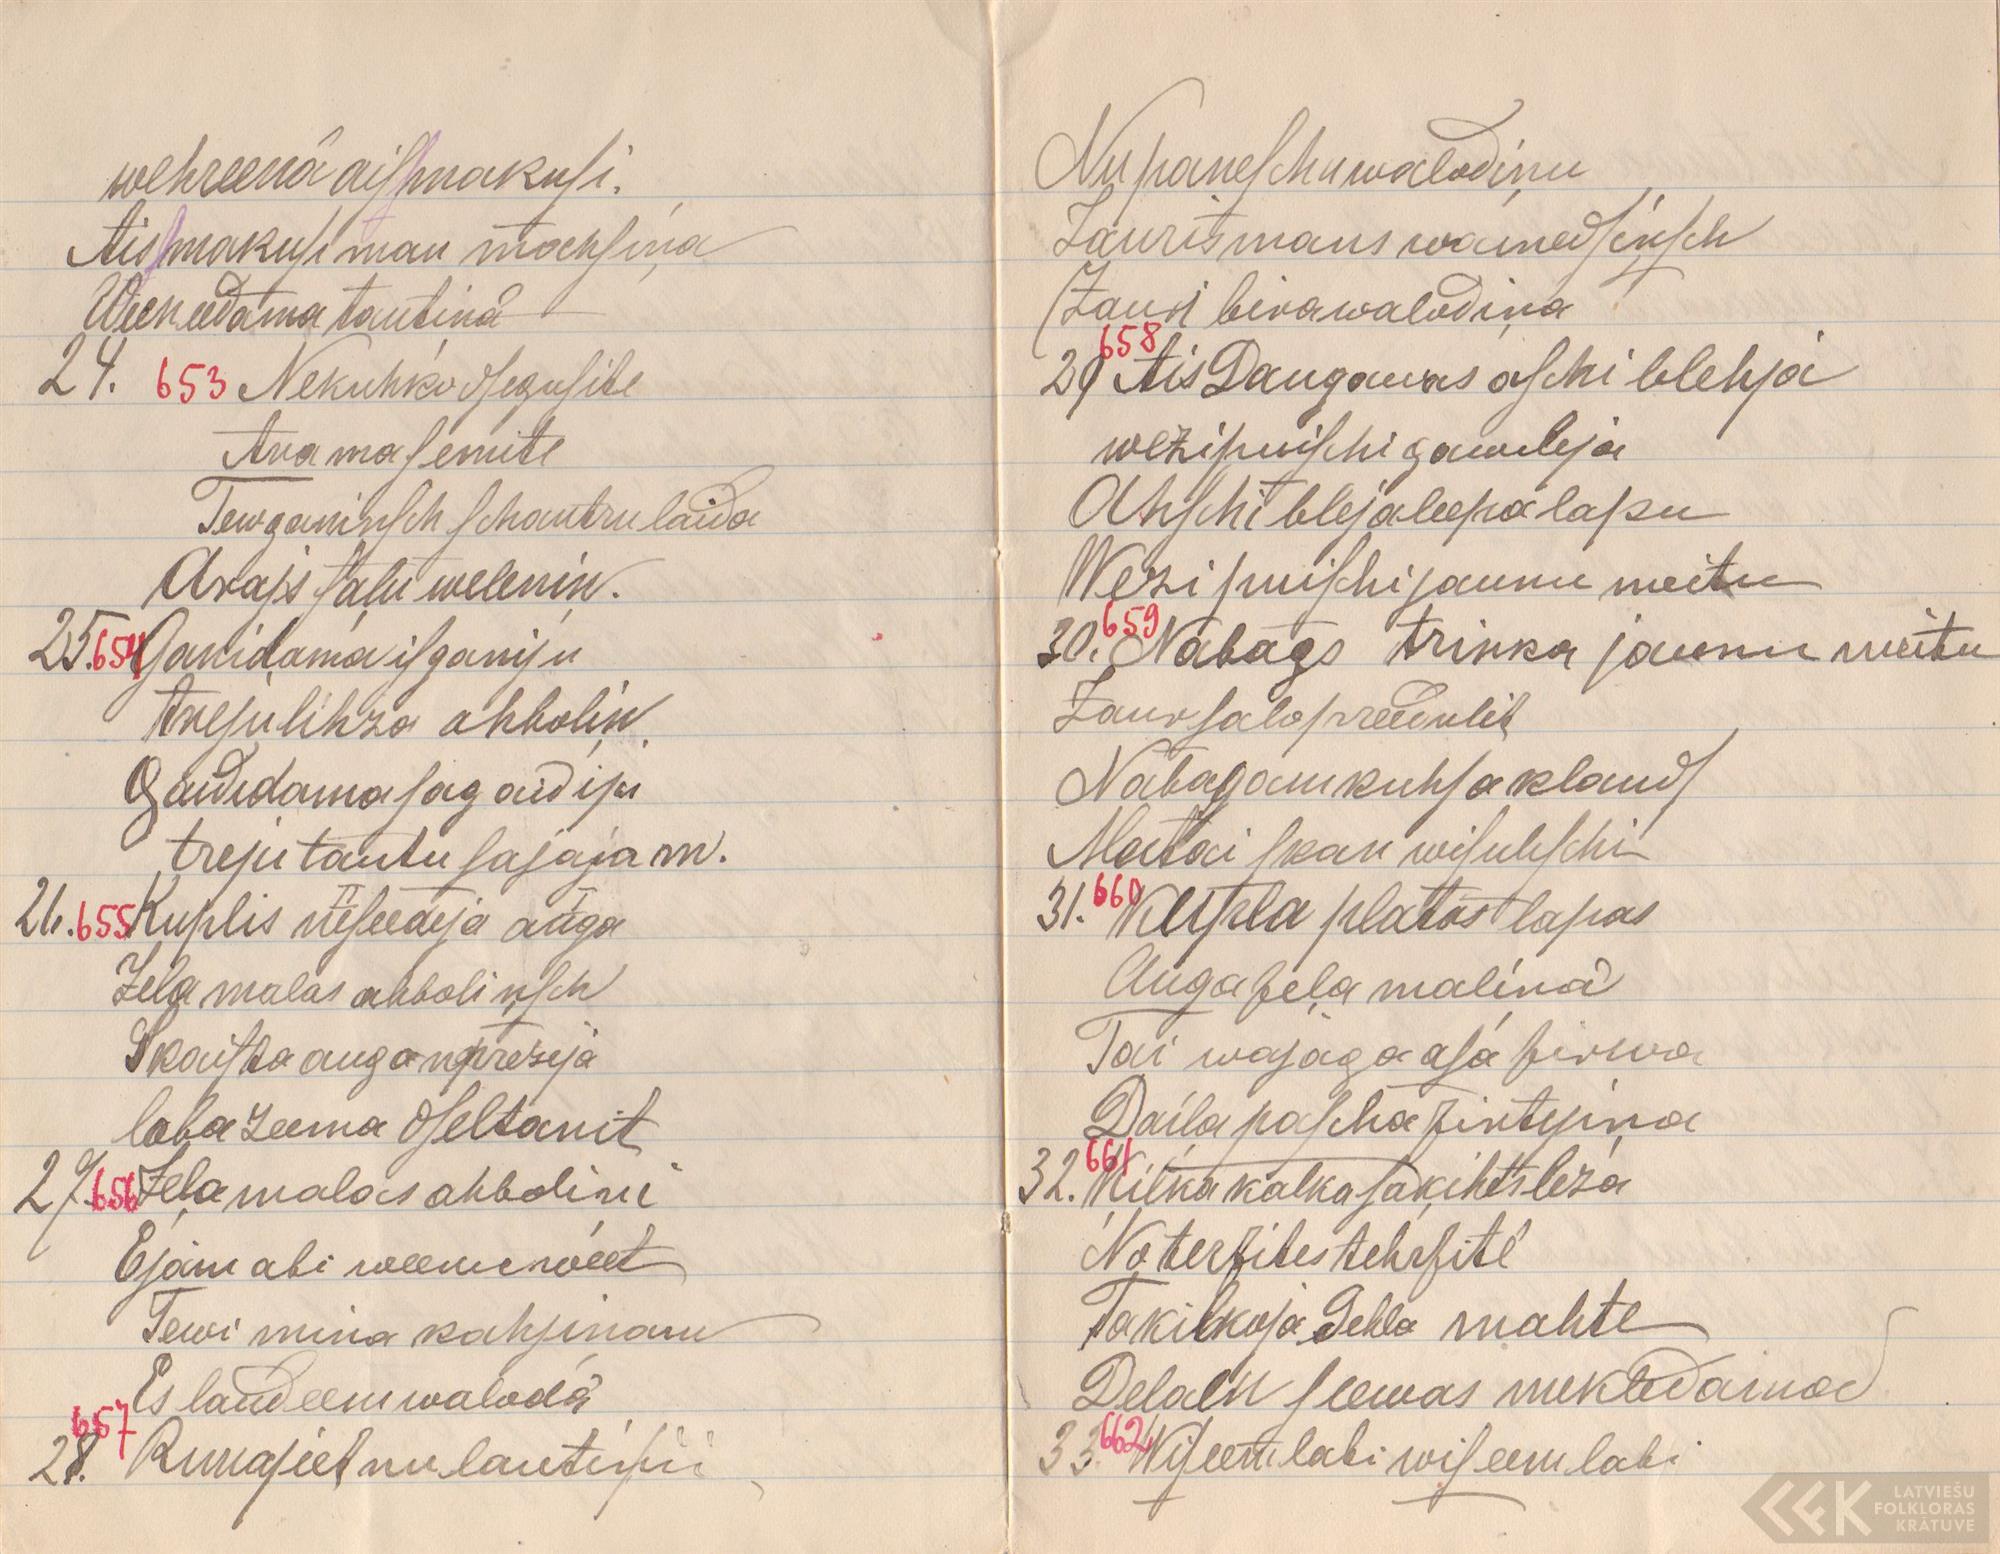 wehreenâ aisſmakuſi.
Aisſmakuſi man mahſiņa
Weenadama tautinâ
24. 653 Nekuhko dſeguſite
Ara maſemite
Tew ganinſch ſchautru laida
Arajs ſalu welenin.
25. 654 Ganidama iſganiju
treju lihza ahbolin.
Gaididama ſagaidiju
treju tautu ſajajam.
26. 655 Kuplis neſeedeja auga
Zela malas ahbolinſch
Skaiſta auga neprezeja
laba zeema dſeltanit
27. 656 Zeļa malas ahbolini
Ejam abi weenu weet
Tewi mina kahjinam
Es laudeem walodâ
657
28. Runajeet nu lautiņi
Nu paneſchu walodinu
Zauris mans wainadſiņſch
Zauri bira walodiņa
658
29 Ais Daugawas aſchi blehja
wezi puiſchi gawileja
Ahſchi bleja leepa lapu
Wezi puiſchi jaunu meitu
30. 659 Nabags trinka jaunu meitu
Zaur ſalo preedulit
Nabagam kuhſa klaudſ
Matai ſkan wiſulſchi
31. 660 Kupla platas lapas
Auga zeļa malinâ
Tai wajaga aſa zirwa
Daila paſcha zirtejina
32. 661 Kilka kalka ſakihts leza
No terzites tehrzitê
Ta kilkoja Dehla mahte
Delaem ſeewas mekledamad
33. 662 Wiſeem labi wiſeem labi
LATVIEŠU
FOLKLORAS
KRĀTUVE